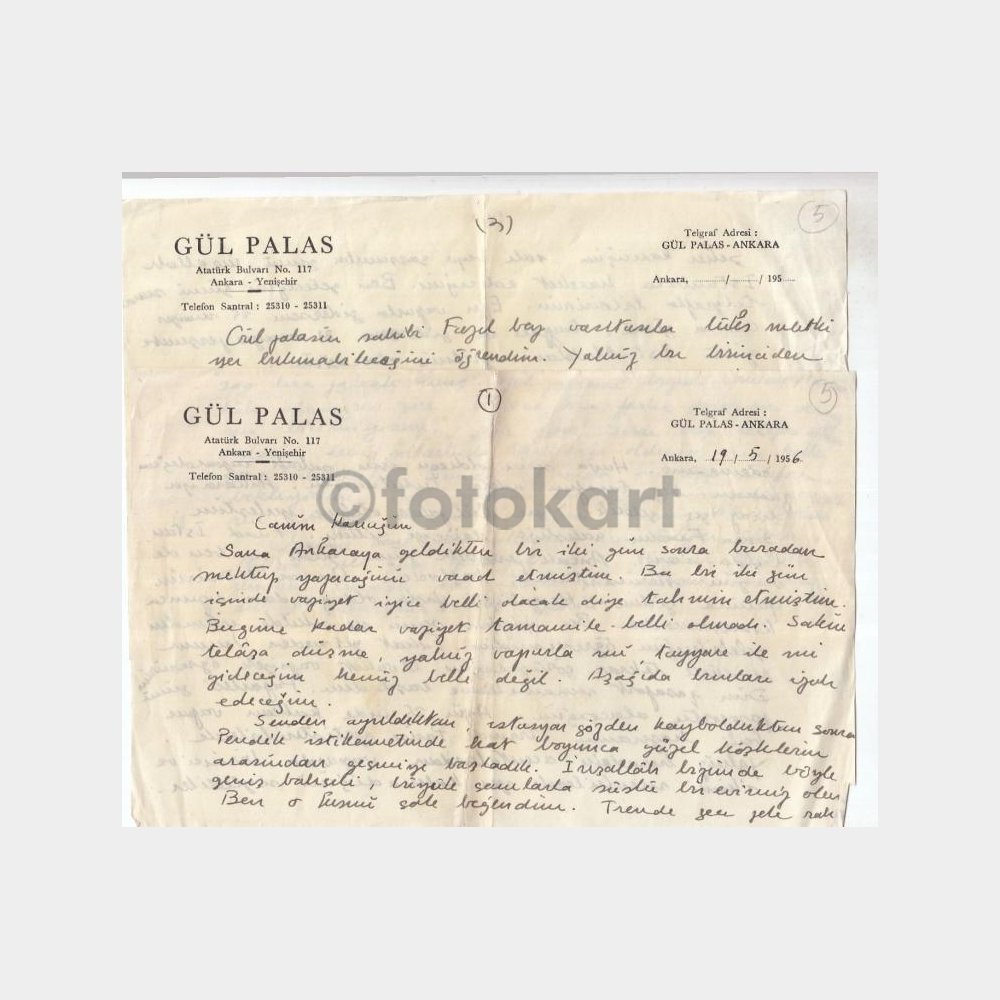 (3)
5
GÜL PALAS
Atatürk Bulvarı No. 117
Ankara - Yenişehir
Telefon Santral : 25310 - 25311
Telgraf Adresi :
GÜL PALAS - ANKARA
Ankara, ......../......../ 195 .....
Gül palasın sahibi Fazıl bey vasıtasıla mutlki
yer bulunabileceğini öğrendim. Yalnız bu birinciden
(1)
5
GÜL PALAS
Atatürk Bulvarı No. 117
Ankara - Yenişehir
Telefon Santral : 25310 - 25311
Telgraf Adresi :
GÜL PALAS - ANKARA
Ankara, 19 / 5 / 1956
©fotokart
Canım Karıcığım
Sana Ankaraya geldikten bir iki gün sonra buradan
mektup yazacağımı vaad etmiştim. Bu bir iki gün
içinde vaziyet iyice belli olacak diye tahmin etmiştim.
Bugüne kadar vaziyet tamamile belli olmadı. Sakın
telâşa düşme, yalnız vapurla mı, tayyare ile mi
gideceğim henüz belli değil. Aşağıda bunları izah
edeceğim.
Senden ayrıldıktan, istasyon gözden kaybolduktan sonra
Pendik istikametinde hat boyunca güzel köşklerin
arasından geçmiye başladık. İnşallâh bizimde böyle
geniş bahçeli, büyük çamlarla süslü bir evimiz olur
Ben o kısmı çok beğendim. Trende